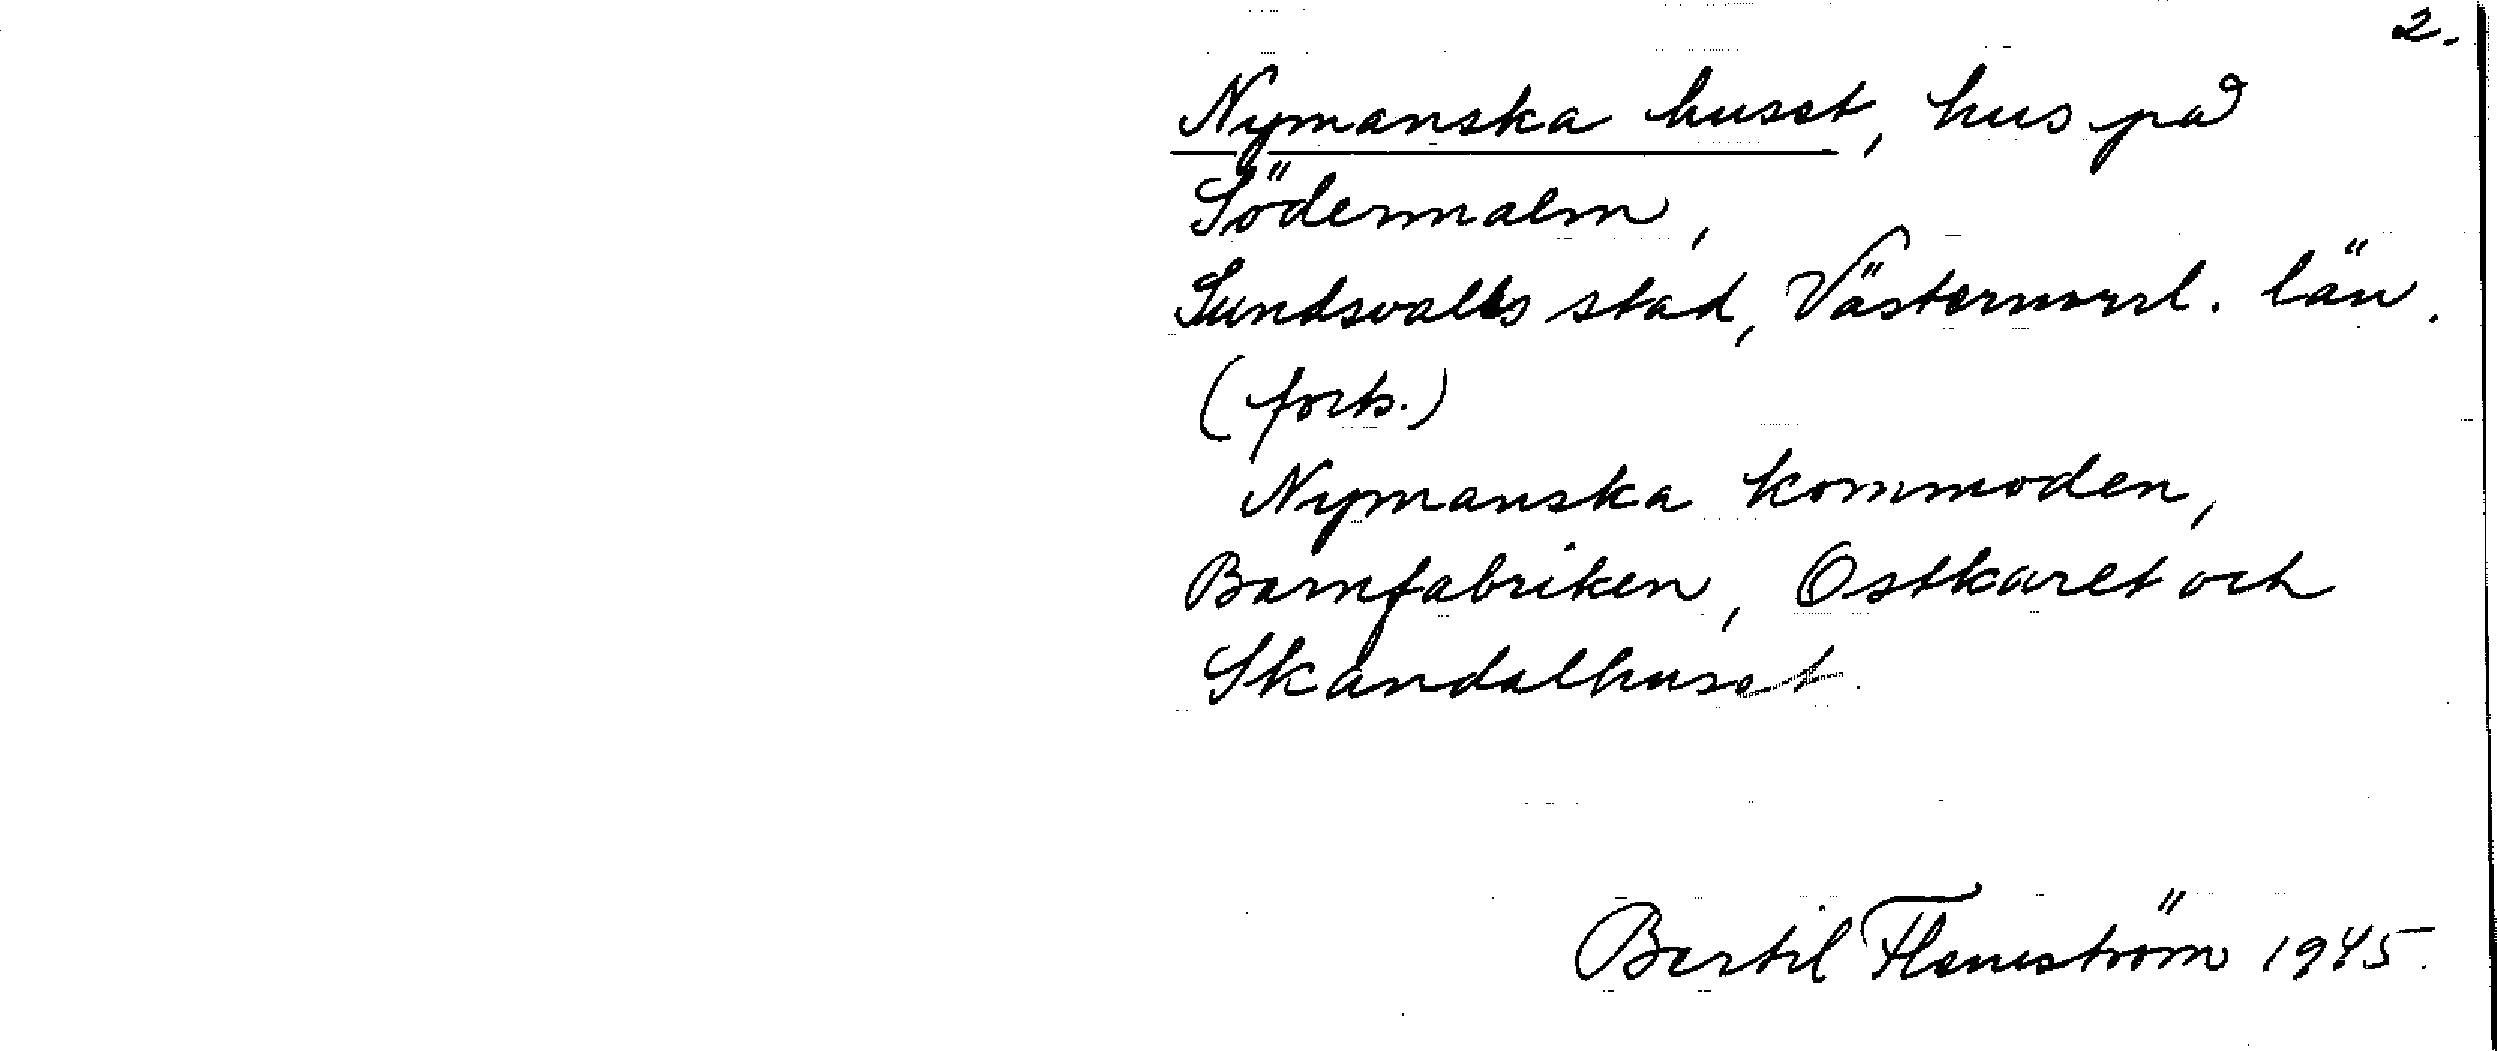 2.
Nymanska huset, hus på
Södermalm,
Sundsvalls stad, Västernorrl. län.
(forts.)
Nymanska kommoden,
Barnfabriken, Ostkaret och
Skandalhuset.
Bertil Flemström 1945.